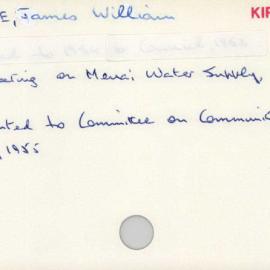 E, James William
KIR
ering on Menai Water Supply,
nted to Committee on Communi
, 1955